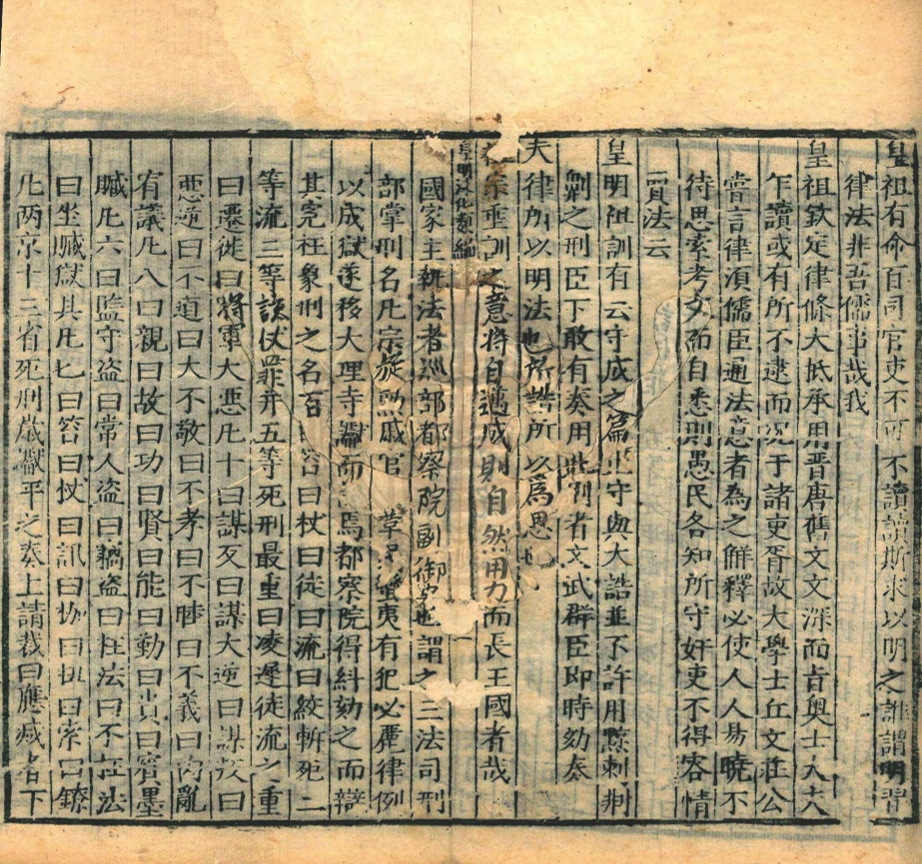 皇祖有命百司官吏不可不讀讀斯求以明之誰謂明習
律法非吾儒事哉我
皇祖欽定律條大抵承用晉唐舊文文深而旨奧士大夫
乍讀或有所不逮而況于諸吏胥故大學士丘文莊公
嘗言律湏儒臣通法意者為之觧釋必使人人易曉不
待思索考而自悉則愚民各知所守奸吏不得容情
賣法云
皇明祖訓有云守成之篇止守與大誥並不許用黥刺剕
劓之刑臣下敢有奏用此刑者文武群臣即時劾奏
夫律所以明法也所誥所以為思也
祖宗垂訓之意將自邁成則自然用力而長王國者哉
皇明泳化類編
國家主執法者巡部都察院副御史也謂之三法司刑
部掌刑名凡宗旋勲戚官夷有犯必麗律例
以成獄遂移大理寺讞而焉都察院得糾劾之而辯
其寃枉象刑之名百曰笞曰杖曰徒曰流曰絞斬死二
等流三等該仗罪并五等死刑最重曰凌遲徒流之重
曰遷徙曰將軍大惡凡十曰謀反曰謀大逆曰謀叛曰
惡逆曰不道曰大不敬曰不孝曰不睦曰不義曰内亂
有議凡八曰親曰故曰功曰賢曰能曰勤曰貴曰賓墨
贓凡六曰監守盗曰常人盗曰竊盗曰枉法曰不枉法
曰坐贓獄具凡七曰笞曰杖曰訊曰枷曰杻曰索曰鐐
凡两京十三省死刑歲讞平之奏上請裁曰應减者下